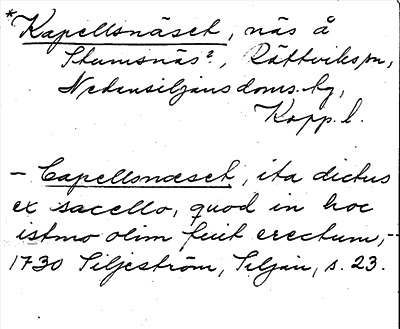 *Kapellsnäset, näs å
Stumsnäs², Rättvikssn,
Nedansiljans doms. hg,
Kopp. l.
- Capellsnæset, ita dictus
ex sacello, quod in hoc
istmo olim fuit erectum, -
1730 Siljeström, Siljan, s. 23.